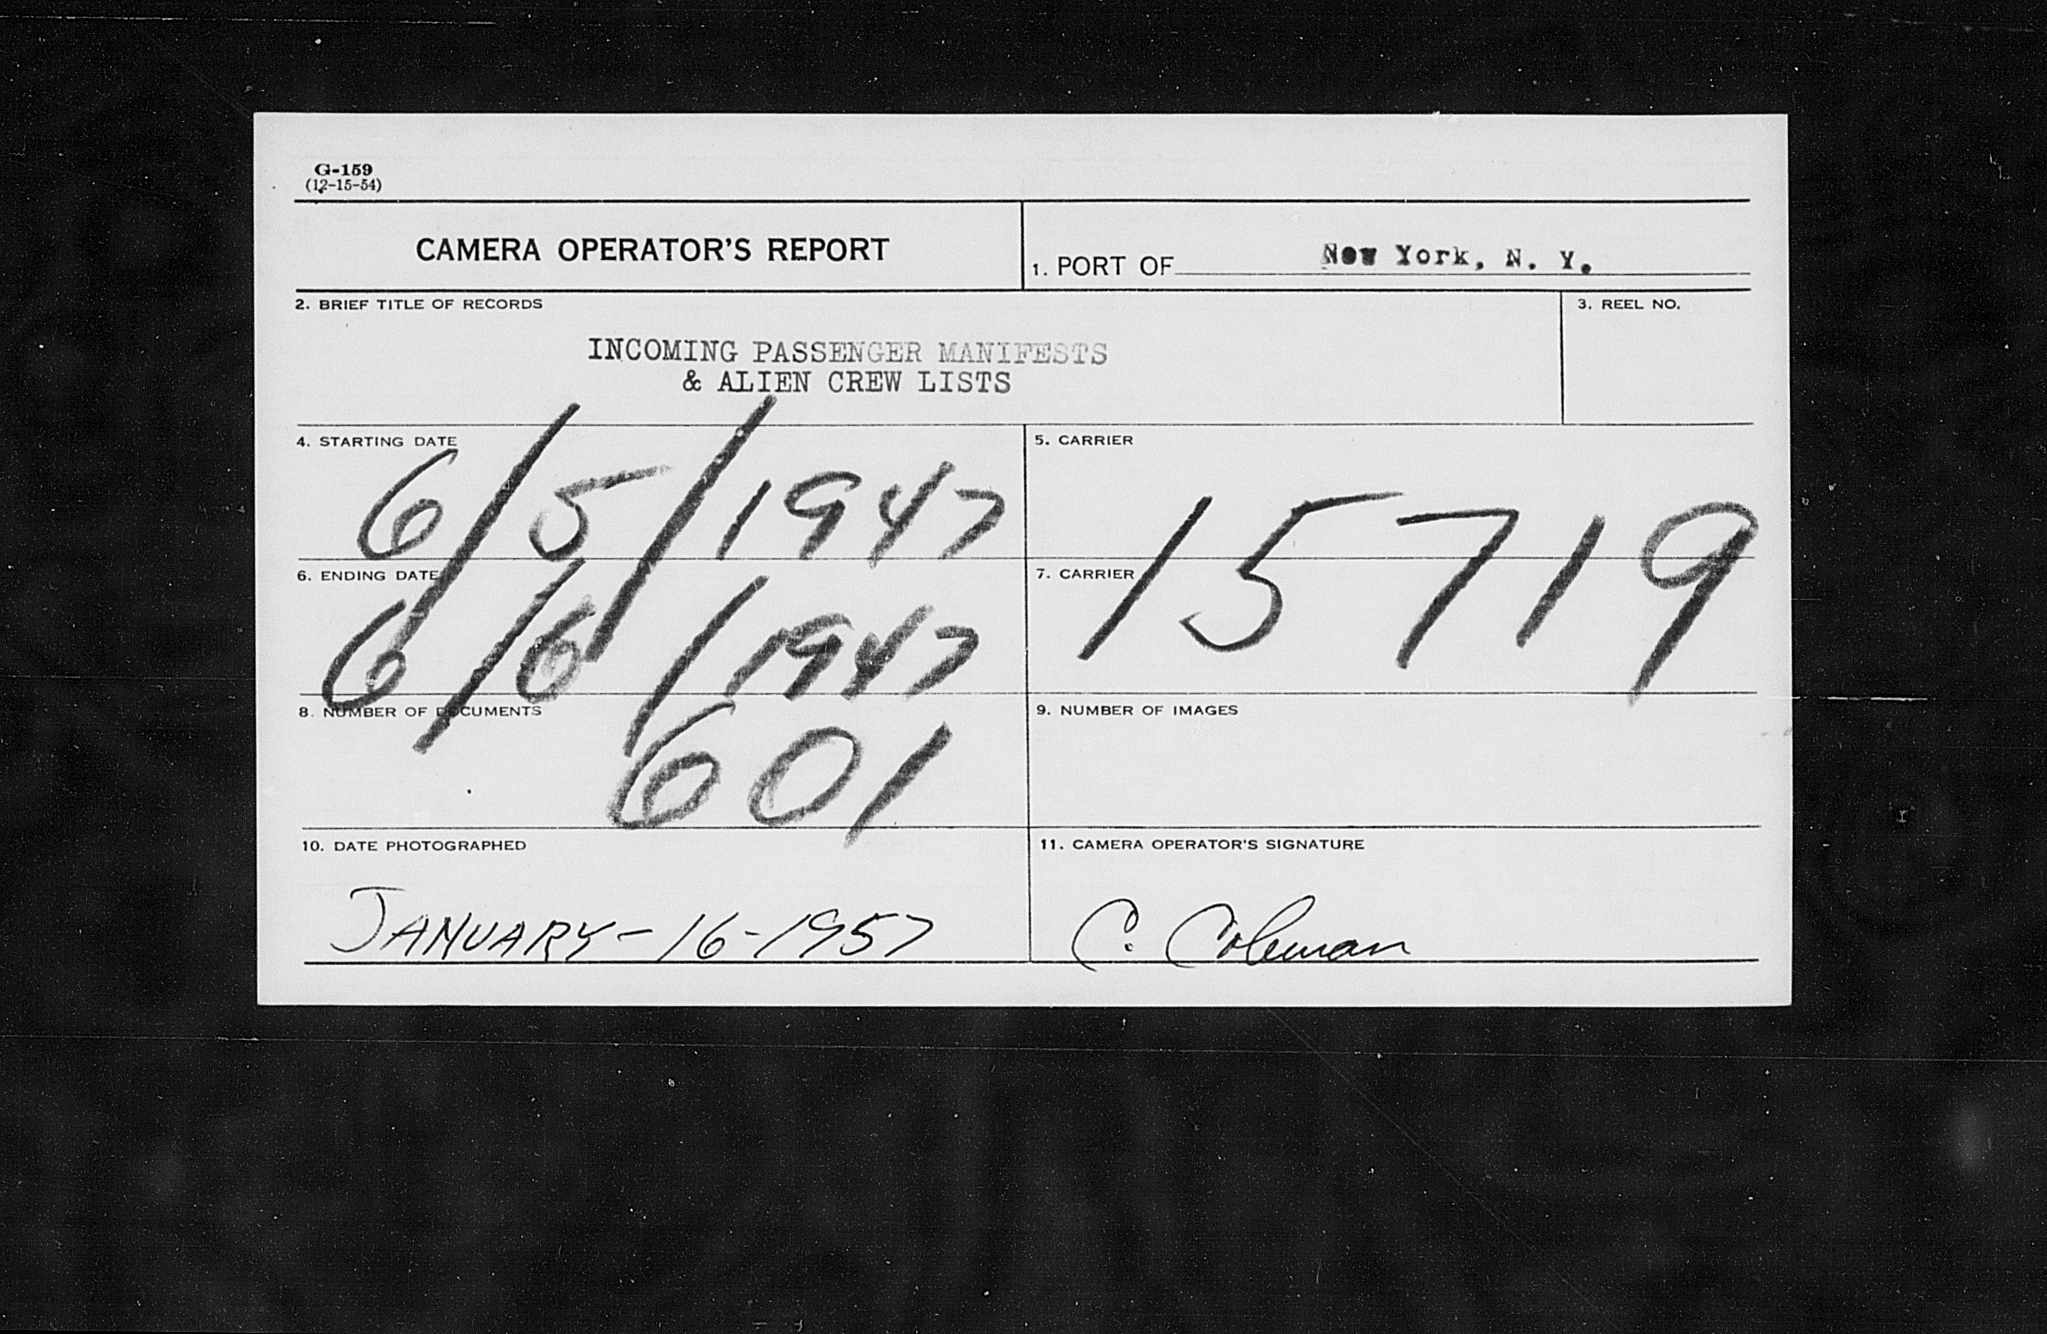 G-159
(12-15-54)
CAMERA OPERATOR'S REPORT
1. PORT OF New York, N. Y.
2. BRIEF TITLE OF RECORDS
3. REEL NO.
INCOMING PASSENGER MANIFESTS
& ALIEN CREW LISTS
4. STARTING DATE
6/5/1947
5. CARRIER
15719
6. ENDING DATE
6/6/1947
7. CARRIER
8. NUMBER OF DOCUMENTS
601
9. NUMBER OF IMAGES
10. DATE PHOTOGRAPHED
JANUARY-16-1957
11. CAMERA OPERATOR'S SIGNATURE
C. Coleman